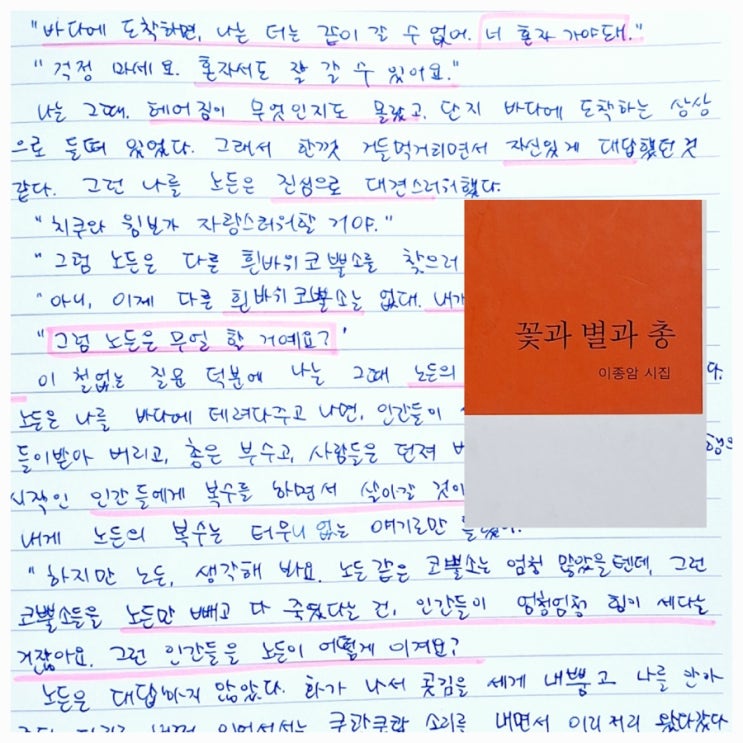 "바다에 도착하면, 나는 너는 같이 갈 수 없어. 너 혼자 가야돼."
"걱정 마세요. 혼자서도 잘 갈 수 있어요."
나는 그때, 헤어짐이 무엇인지도 몰랐고, 단지 바다에 도착하는 상상
으로 들떠 있었다. 그래서 한껏 거들먹거리면서 자신있게 대답했던 것
같다. 그런 나를 노든은 진심으로 대견스러워했다.
"치쿠와 윔보가 자랑스러워할 거야."
"그럼 노든은 다른 흰바위코뿔소를 찾으러
"아니, 이제 다른 흰바위코뿔소는 없대. 내가
"그럼 노든은 무얼 할 거예요?"
이 철없는 질문 덕분에 나는 그때 노든의
다.
노든은 나를 바다에 데려다주고 나면, 인간들이
들이받아 버리고, 총은 부수고, 사람들은 던져
시작인 인간들에게 복수를 하면서 살아갈
내게 노든의 복수는 터무니없는 얘기로만
"하지만 노든, 생각해 봐요. 노든 같은 코뿔소는 엄청 많았을텐데, 그런
코뿔소들을 노든만 빼고 다 죽였다는 건, 인간들이 엄청엄청 힘이 세다는
거잖아요. 그런 인간들을 노든이 어떻게 이겨요?
노든은 대답하지 않았다. 화가 나서 콧김을 세게 내뿜고 나를 안아
소리를 내면서 이리저리 왔다갔다
꽃과 별과 총
이종암 시집